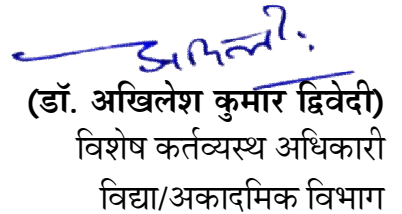 (डॉ. अखिलेश कुमार द्विवेदी)
विशेष कर्तव्यस्थ अधिकारी
विद्या/अकादमिक विभाग